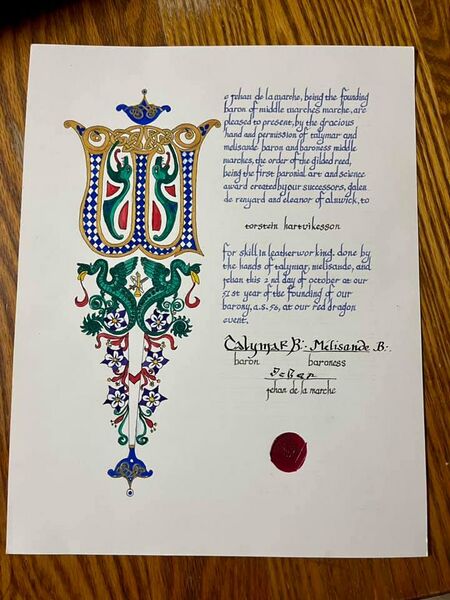 We jehan de la marche, being the founding
baron of middle marches marche, are
pleased to present, by the gracious
hand and permission of talymar and
melisande baron and baroness middle
marches, the order of the gilded reed,
being the first baronial art and science
award created by our successors, dalen
de renyard and eleanor of alnwick, to
torstein hartvikesson
for skill in leatherworking. done by
the hands of talymar, melisande, and
jehan this 2 nd day of october at our
51 st year of the founding of our
barony, a.s. 56, at our red dragon
event.
Talymar B: Melisande B.
baron baroness
Jehan
jehan de la marche